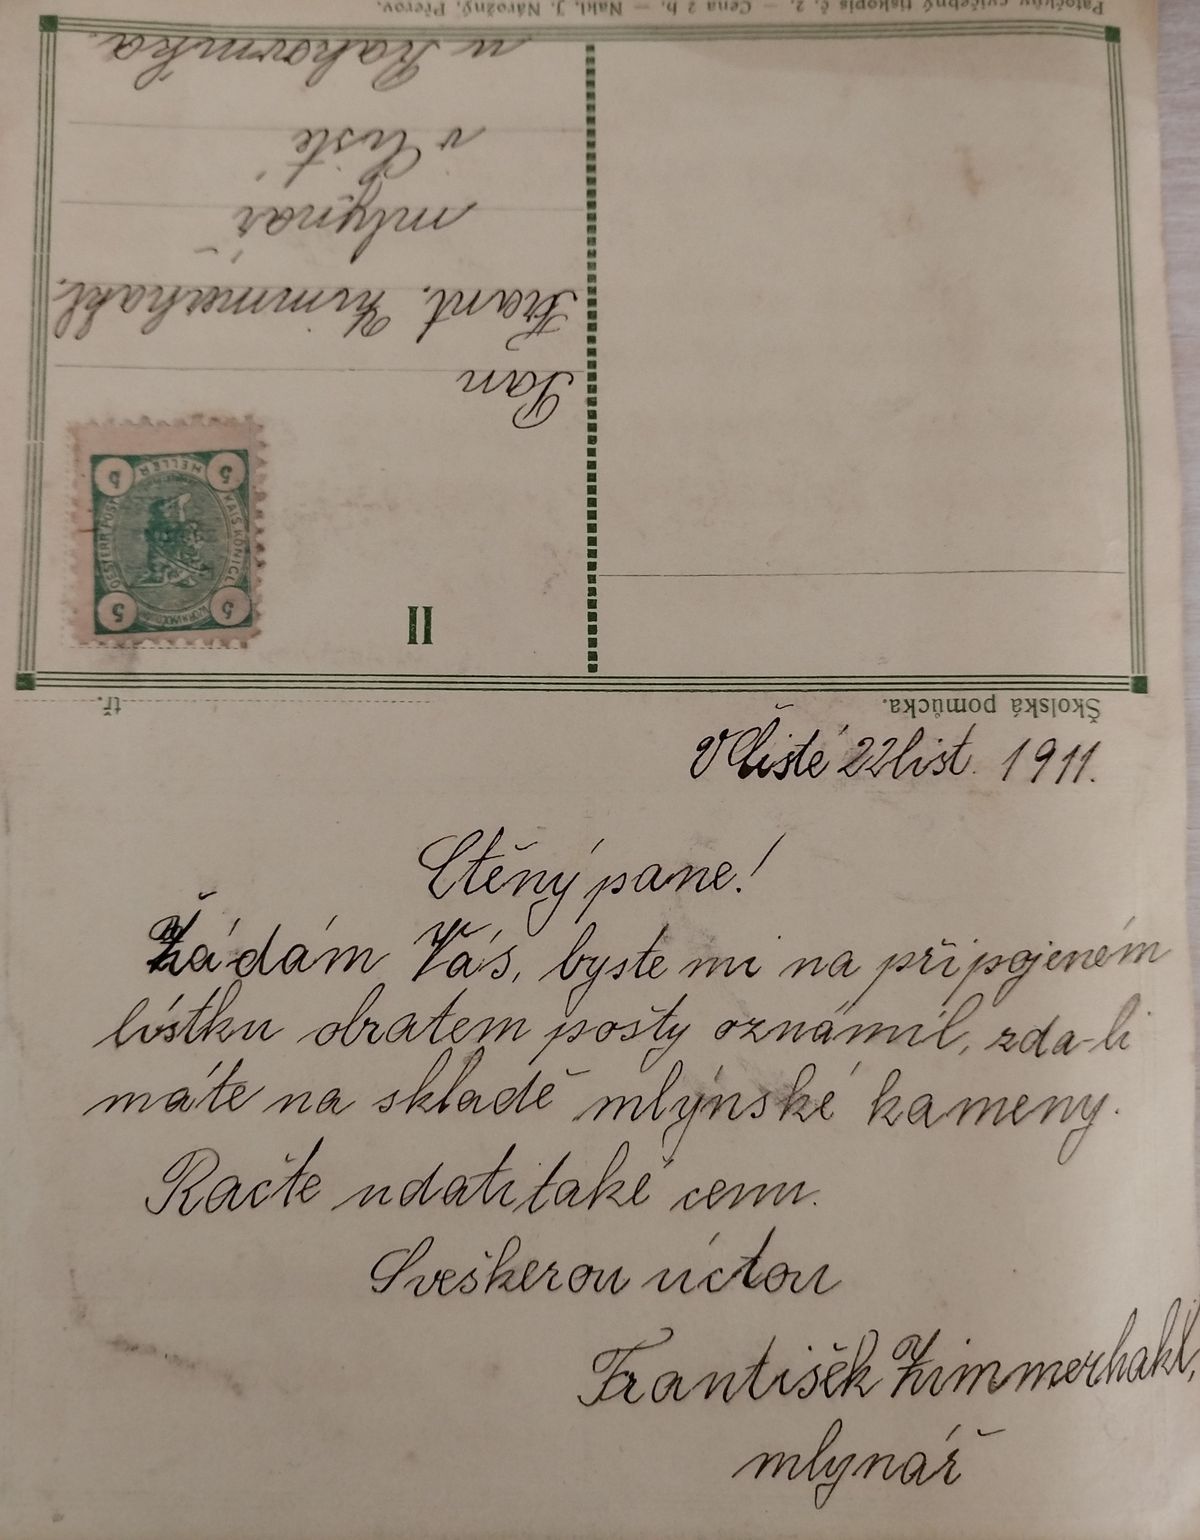 Patočkův cvičebný tiskopis č. 2. — Cena 2 h. — Nakl. J. Nárožný, Přerov.
u Rakovníka.
v Čisté
mlynář
Frant. Zimmerhakl,
Pan
5 HELLER 5
KAIS. KÖNIGL.
OESTERR. POST
5 5
II
Školská pomůcka.
tř.
V Čisté 22 list. 1911.
Ctěný pane!
Žádám Vás, byste mi na připojeném
lístku obratem pošty oznámil, zda-li
máte na skladě mlýnské kameny.
Račte udati také cenu.
S veškerou úctou
František Zimmerhakl,
mlynář